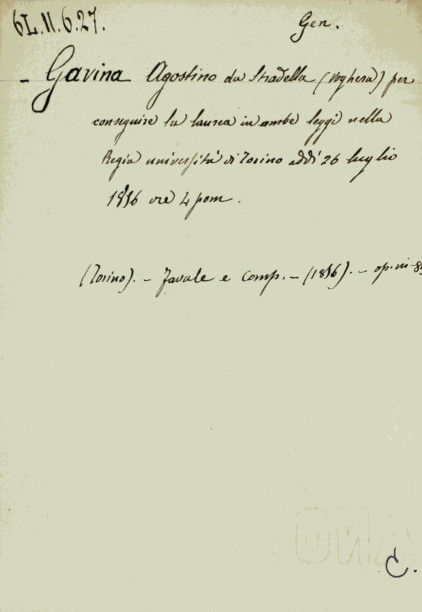 6L.N.6.27.
Gen.
- Gavina Agostino da Stradella (Voghera) per
conseguire la laurea in ambe leggi nella
Regia università di Torino addì 26 luglio
1856 ore 4 pom.
(Torino). - Favale e comp. - (1856). - op. in-8°
C.